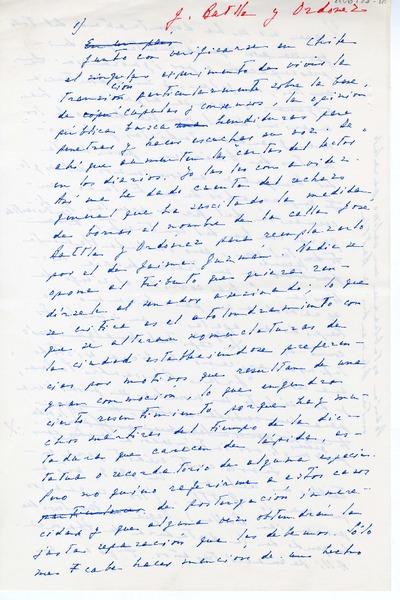 J. Batlle y Ordoñez
1)
En un país
Junto con verificarse en Chile
el singular experimento de vivir la
transición particularmente sobre la base
de cúpulas y consensos, la opinión
pública busca hendiduras para
penetrar y hacer escuchar su voz. De
ahí que aumenten las cartas del lector
en los diarios. Yo las leo con avidez.
Así me he dado cuenta del rechazo
general que ha suscitado la medida
de borrar el nombre de la calle José
Batlle y Ordoñez para remplazarlo
por el de Jaime Guzmán. Nadie se
opone al tributo que quiera ren-
dírsele al senador asesinado; lo que
se critica es el atolondramiento con
que se alteran nomenclaturas de
la ciudad estableciéndose preferen-
cias por motivos que resultan de una
gran conmoción, lo que engendra
cierto resentimiento porque hay mu-
chos mártires del tiempo de la dic-
tadura que carecen de lápida, es-
tatua o recordatorio de alguna especie.
Pero no quiero referirme a estos casos
particulares de postergación inmere-
cida y que alguna vez obtendrán la
justa reparación que les debemos. Sólo
me cabe hacer mención de un hecho